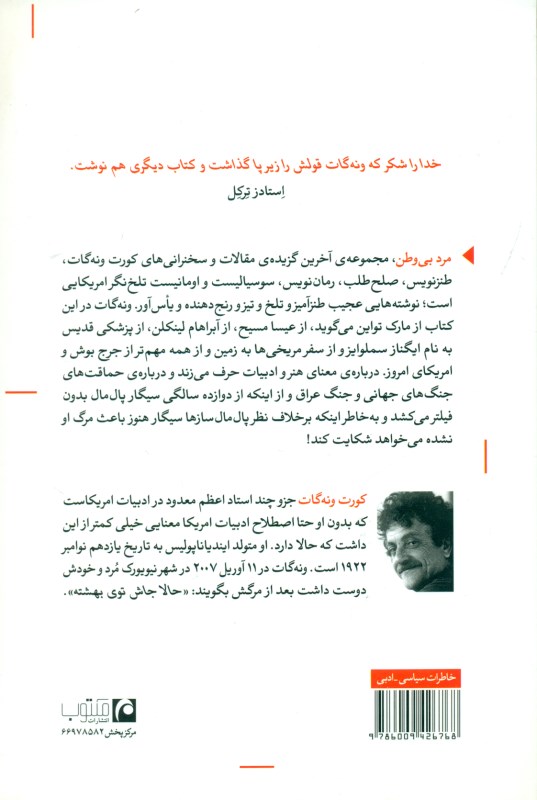 خدا را شکر که ونه‌گات قولش را زیر پا گذاشت و کتاب دیگری هم نوشت.
اِستادز تِرکِل
مرد بی‌وطن، مجموعه‌ی آخرین گزیده‌ی مقالات و سخنرانی‌های کورت ونه‌گات،
طنزنویس، صلح‌طلب، رمان‌نویس، سوسیالیست و اومانیست تلخ‌نگر امریکایی
است؛ نوشته‌هایی عجیب طنزآمیز و تلخ و تیز و رنج‌دهنده و یأس‌آور. ونه‌گات در این
کتاب از مارک تواین می‌گوید، از عیسا مسیح، از آبراهام لینکلن، از پزشکی قدیس
به نام ایگناز سملوایز و از سفر مریخی‌ها به زمین و از همه مهم‌تر از جرج بوش و
امریکای امروز. درباره‌ی معنای هنر و ادبیات حرف می‌زند و درباره‌ی حماقت‌های
جنگ‌های جهانی و جنگ عراق و از اینکه از دوازده سالگی سیگار پال‌مال بدون
فیلتر می‌کشد و به‌خاطر اینکه برخلاف نظر پال‌مال‌سازها سیگار هنوز باعث مرگ او
نشده می‌خواهد شکایت کند!
کورت ونه‌گات جزو چند استاد اعظم معدود در ادبیات امریکاست
که بدون او حتا اصطلاح ادبیات امریکا معنایی خیلی کمتر از این
داشت که حالا دارد. او متولد ایندیاناپولیس به تاریخ یازدهم نوامبر
۱۹۲۲ است. ونه‌گات در ۱۱ آوریل ۲۰۰۷ در شهر نیویورک مُرد و خودش
دوست داشت بعد از مرگش بگویند: «حالا جاش توی بهشته».
خاطرات سیاسی-ادبی
9 786009 426768
مکتوب
انتشارات
مرکز پخش ۶۶۹۷۸۵۸۲